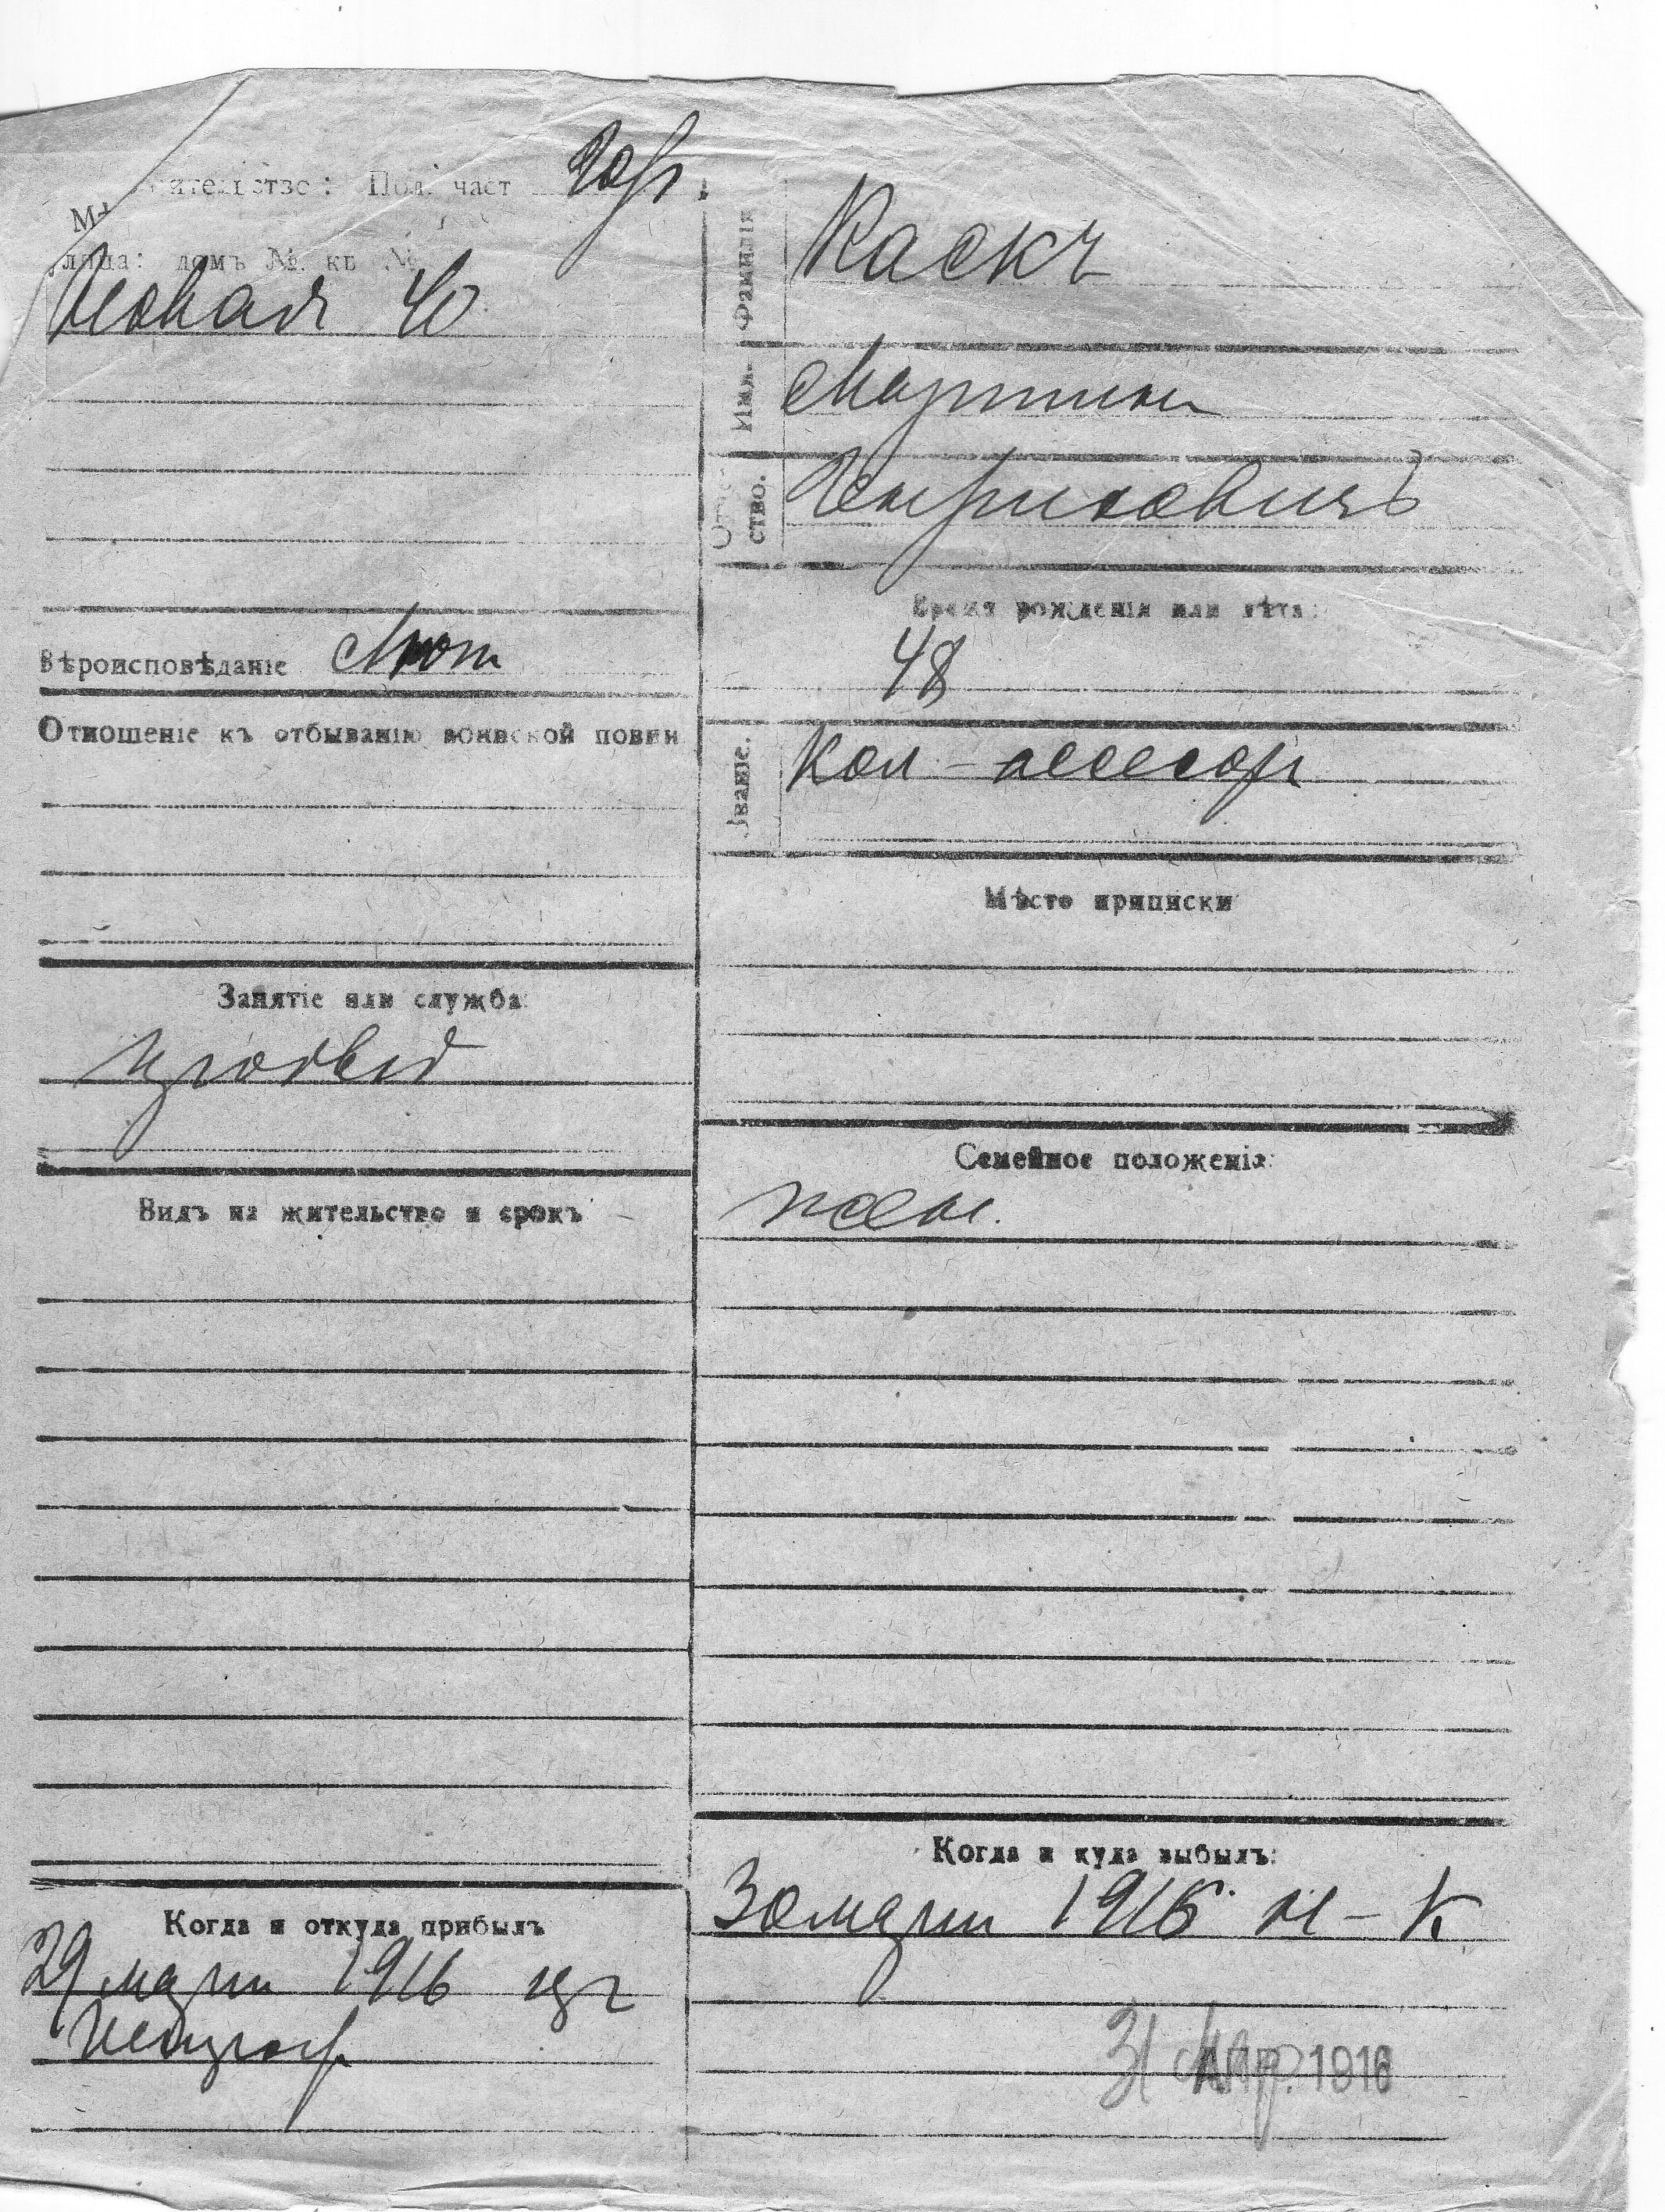 ительство: Пол. част Гор.
М
лица: домъ № кв №
40
Вѣроисповѣданіе Лют
Отношеніе къ отбыванію воинской повин
Занятіе или служба:
Видъ на жительство и срокъ
Когда и откуда прибылъ
29 марта 1916 из
Фамилія Каскъ
Имя. Мартинъ
Отче-
ство. Генриховичъ
Время рожденія или лѣта:
48
Званіе. Кол - ассесоръ
Мѣсто приписки
Семейное положеніе:
жен.
Когда и куда выбылъ:
30 марта 1916 Н-К
31 Мар. АПР. 1916